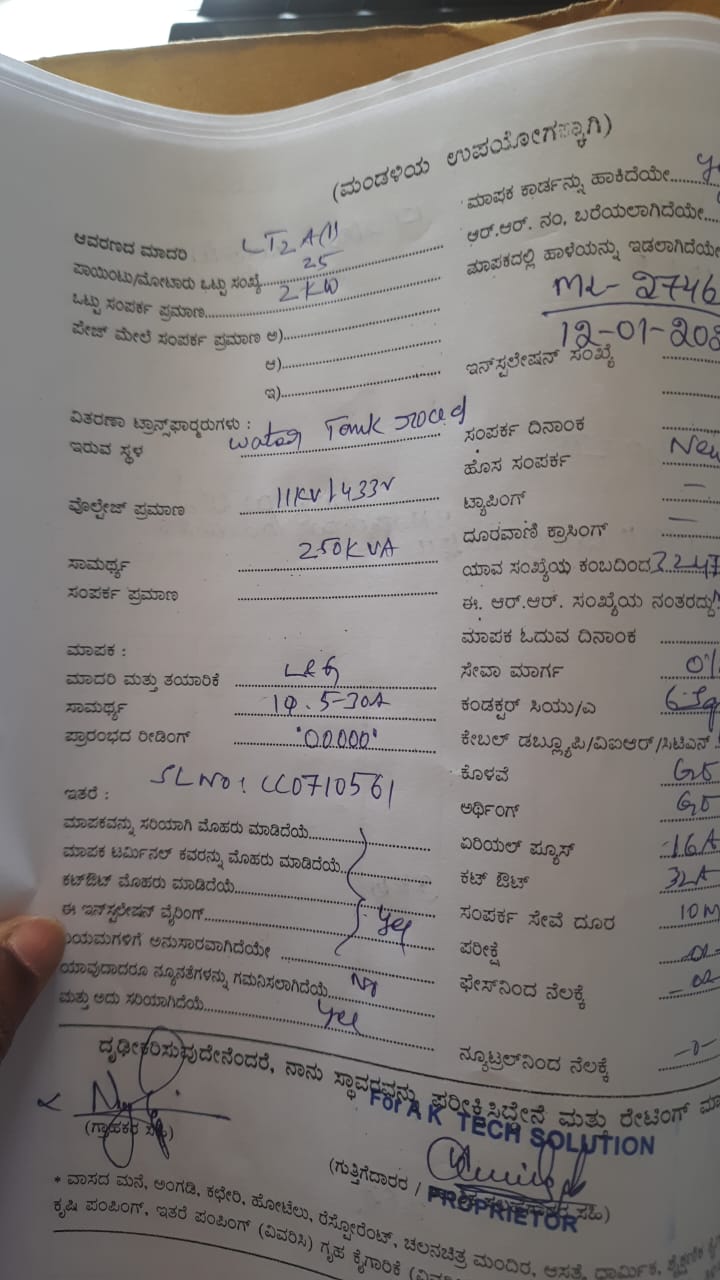 (ಮಂಡಳಿಯ ಉಪಯೋಗಕ್ಕಾಗಿ)
ಆವರಣದ ಮಾದರಿ LT2 A(11
ಪಾಯಿಂಟು/ಮೋಟಾರು ಒಟ್ಟು ಸಂಖ್ಯೆ 25
ಒಟ್ಟು ಸಂಪರ್ಕ ಪ್ರಮಾಣ 2 KW
ಪೇಜ್ ಮೇಲೆ ಸಂಪರ್ಕ ಪ್ರಮಾಣ ಅ)
ಆ)
ಇ)
ವಿತರಣಾ ಟ್ರಾನ್ಸ್‌ಫಾರ್‍ಮರುಗಳು :
ಇರುವ ಸ್ಥಳ Water Tank
ವೊಲ್ಟೇಜ್ ಪ್ರಮಾಣ 11KV/433V
ಸಾಮರ್ಥ್ಯ 250KVA
ಸಂಪರ್ಕ ಪ್ರಮಾಣ
ಮಾಪಕ :
ಮಾದರಿ ಮತ್ತು ತಯಾರಿಕೆ L&G
ಸಾಮರ್ಥ್ಯ 1Φ. 5-30A
ಪ್ರಾರಂಭದ ರೀಡಿಂಗ್ '00000'
SL NO: CC0710561
ಇತರೆ :
ಮಾಪಕವನ್ನು ಸರಿಯಾಗಿ ಮೊಹರು ಮಾಡಿದೆಯೆ
ಮಾಪಕ ಟರ್ಮಿನಲ್ ಕವರನ್ನು ಮೊಹರು ಮಾಡಿದೆಯೆ
ಕಟ್‌ಔಟ್ ಮೊಹರು ಮಾಡಿದೆಯೆ
ಈ ಇನ್‌ಸ್ಟಲೇಷನ್ ವೈರಿಂಗ್ Yes
ನಿಯಮಗಳಿಗೆ ಅನುಸಾರವಾಗಿದೆಯೇ
ಯಾವುದಾದರೂ ನ್ಯೂನತೆಗಳನ್ನು ಗಮನಿಸಲಾಗಿದೆಯೆ No
ಮತ್ತು ಅದು ಸರಿಯಾಗಿದೆಯೆ Yes
ಮಾಪಕ ಕಾರ್ಡನ್ನು ಹಾಕಿದೆಯೇ
ಆರ್.ಆರ್. ನಂ, ಬರೆಯಲಾಗಿದೆಯೇ
ಮಾಪಕದಲ್ಲಿ ಹಾಳೆಯನ್ನು ಇಡಲಾಗಿದೆಯೇ
ML- 2746
12-01-20
ಇನ್‌ಸ್ಪಲೇಷನ್ ಸಂಖ್ಯೆ
ಸಂಪರ್ಕ ದಿನಾಂಕ
ಹೊಸ ಸಂಪರ್ಕ New
ಟ್ಯಾಪಿಂಗ್ –
ದೂರವಾಣಿ ಕ್ರಾಸಿಂಗ್ –
ಯಾವ ಸಂಖ್ಯೆಯ ಕಂಬದಿಂದ 3247
ಈ. ಆರ್.ಆರ್. ಸಂಖ್ಯೆಯ ನಂತರದ್ದು
ಮಾಪಕ ಓದುವ ದಿನಾಂಕ
ಸೇವಾ ಮಾರ್ಗ
ಕಂಡಕ್ಟರ್ ಸಿಯು/ಎ 6 Sq
ಕೇಬಲ್ ಡಬ್ಲ್ಯೂಪಿ/ವಿಐಆರ್/ಸಿಟಿಎಸ್
ಕೊಳವೆ
ಅರ್ಥಿಂಗ್
ಏರಿಯಲ್ ಪ್ಯೂಸ್ 16A
ಕಟ್ ಔಟ್ 32A
ಸಂಪರ್ಕ ಸೇವೆ ದೂರ 10M
ಪರೀಕ್ಷೆ
ಫೇಸ್‌ನಿಂದ ನೆಲಕ್ಕೆ
ನ್ಯೂಟ್ರಲ್‌ನಿಂದ ನೆಲಕ್ಕೆ –0–
ದೃಢೀಕರಿಸುವುದೇನೆಂದರೆ, ನಾನು ಸ್ಥಾವರವನ್ನು ಪರೀಕ್ಷಿಸಿದ್ದೇನೆ ಮತ್ತು ರೇಟಿಂಗ್
For A K TECH SOLUTION
(ಗ್ರಾಹಕರ ಸಹಿ)
(ಗುತ್ತಿಗೆದಾರರ / ಸಹಿ)
PROPRIETOR
* ವಾಸದ ಮನೆ, ಅಂಗಡಿ, ಕಛೇರಿ, ಹೋಟೆಲು, ರೆಸ್ಟೋರೆಂಟ್, ಚಲನಚಿತ್ರ ಮಂದಿರ, ಆಸ್ಪತ್ರೆ, ಧಾರ್ಮಿಕ, ಶೈಕ್ಷಣಿಕ
ಕೃಷಿ ಪಂಪಿಂಗ್, ಇತರೆ ಪಂಪಿಂಗ್ (ವಿವರಿಸಿ) ಗೃಹ ಕೈಗಾರಿಕೆ